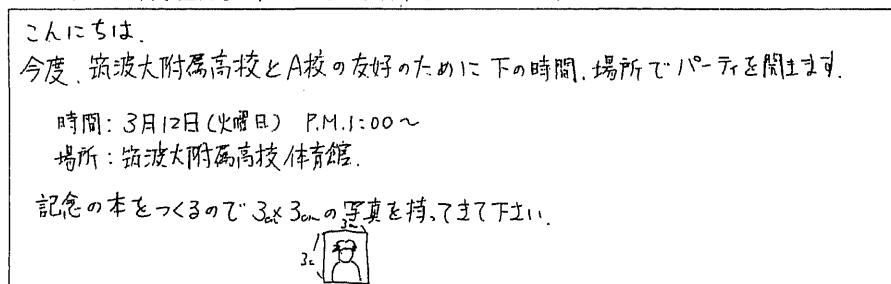 こんにちは.
今度、筑波大附属高校とA校の友好のために下の時間、場所でパーティを開きます.
時間：3月12日(火曜日) P.M.1:00～
場所：筑波大附属高校体育館.
記念の本をつくるので3cm×3cmの写真を持ってきて下さい.
3cm
3cm